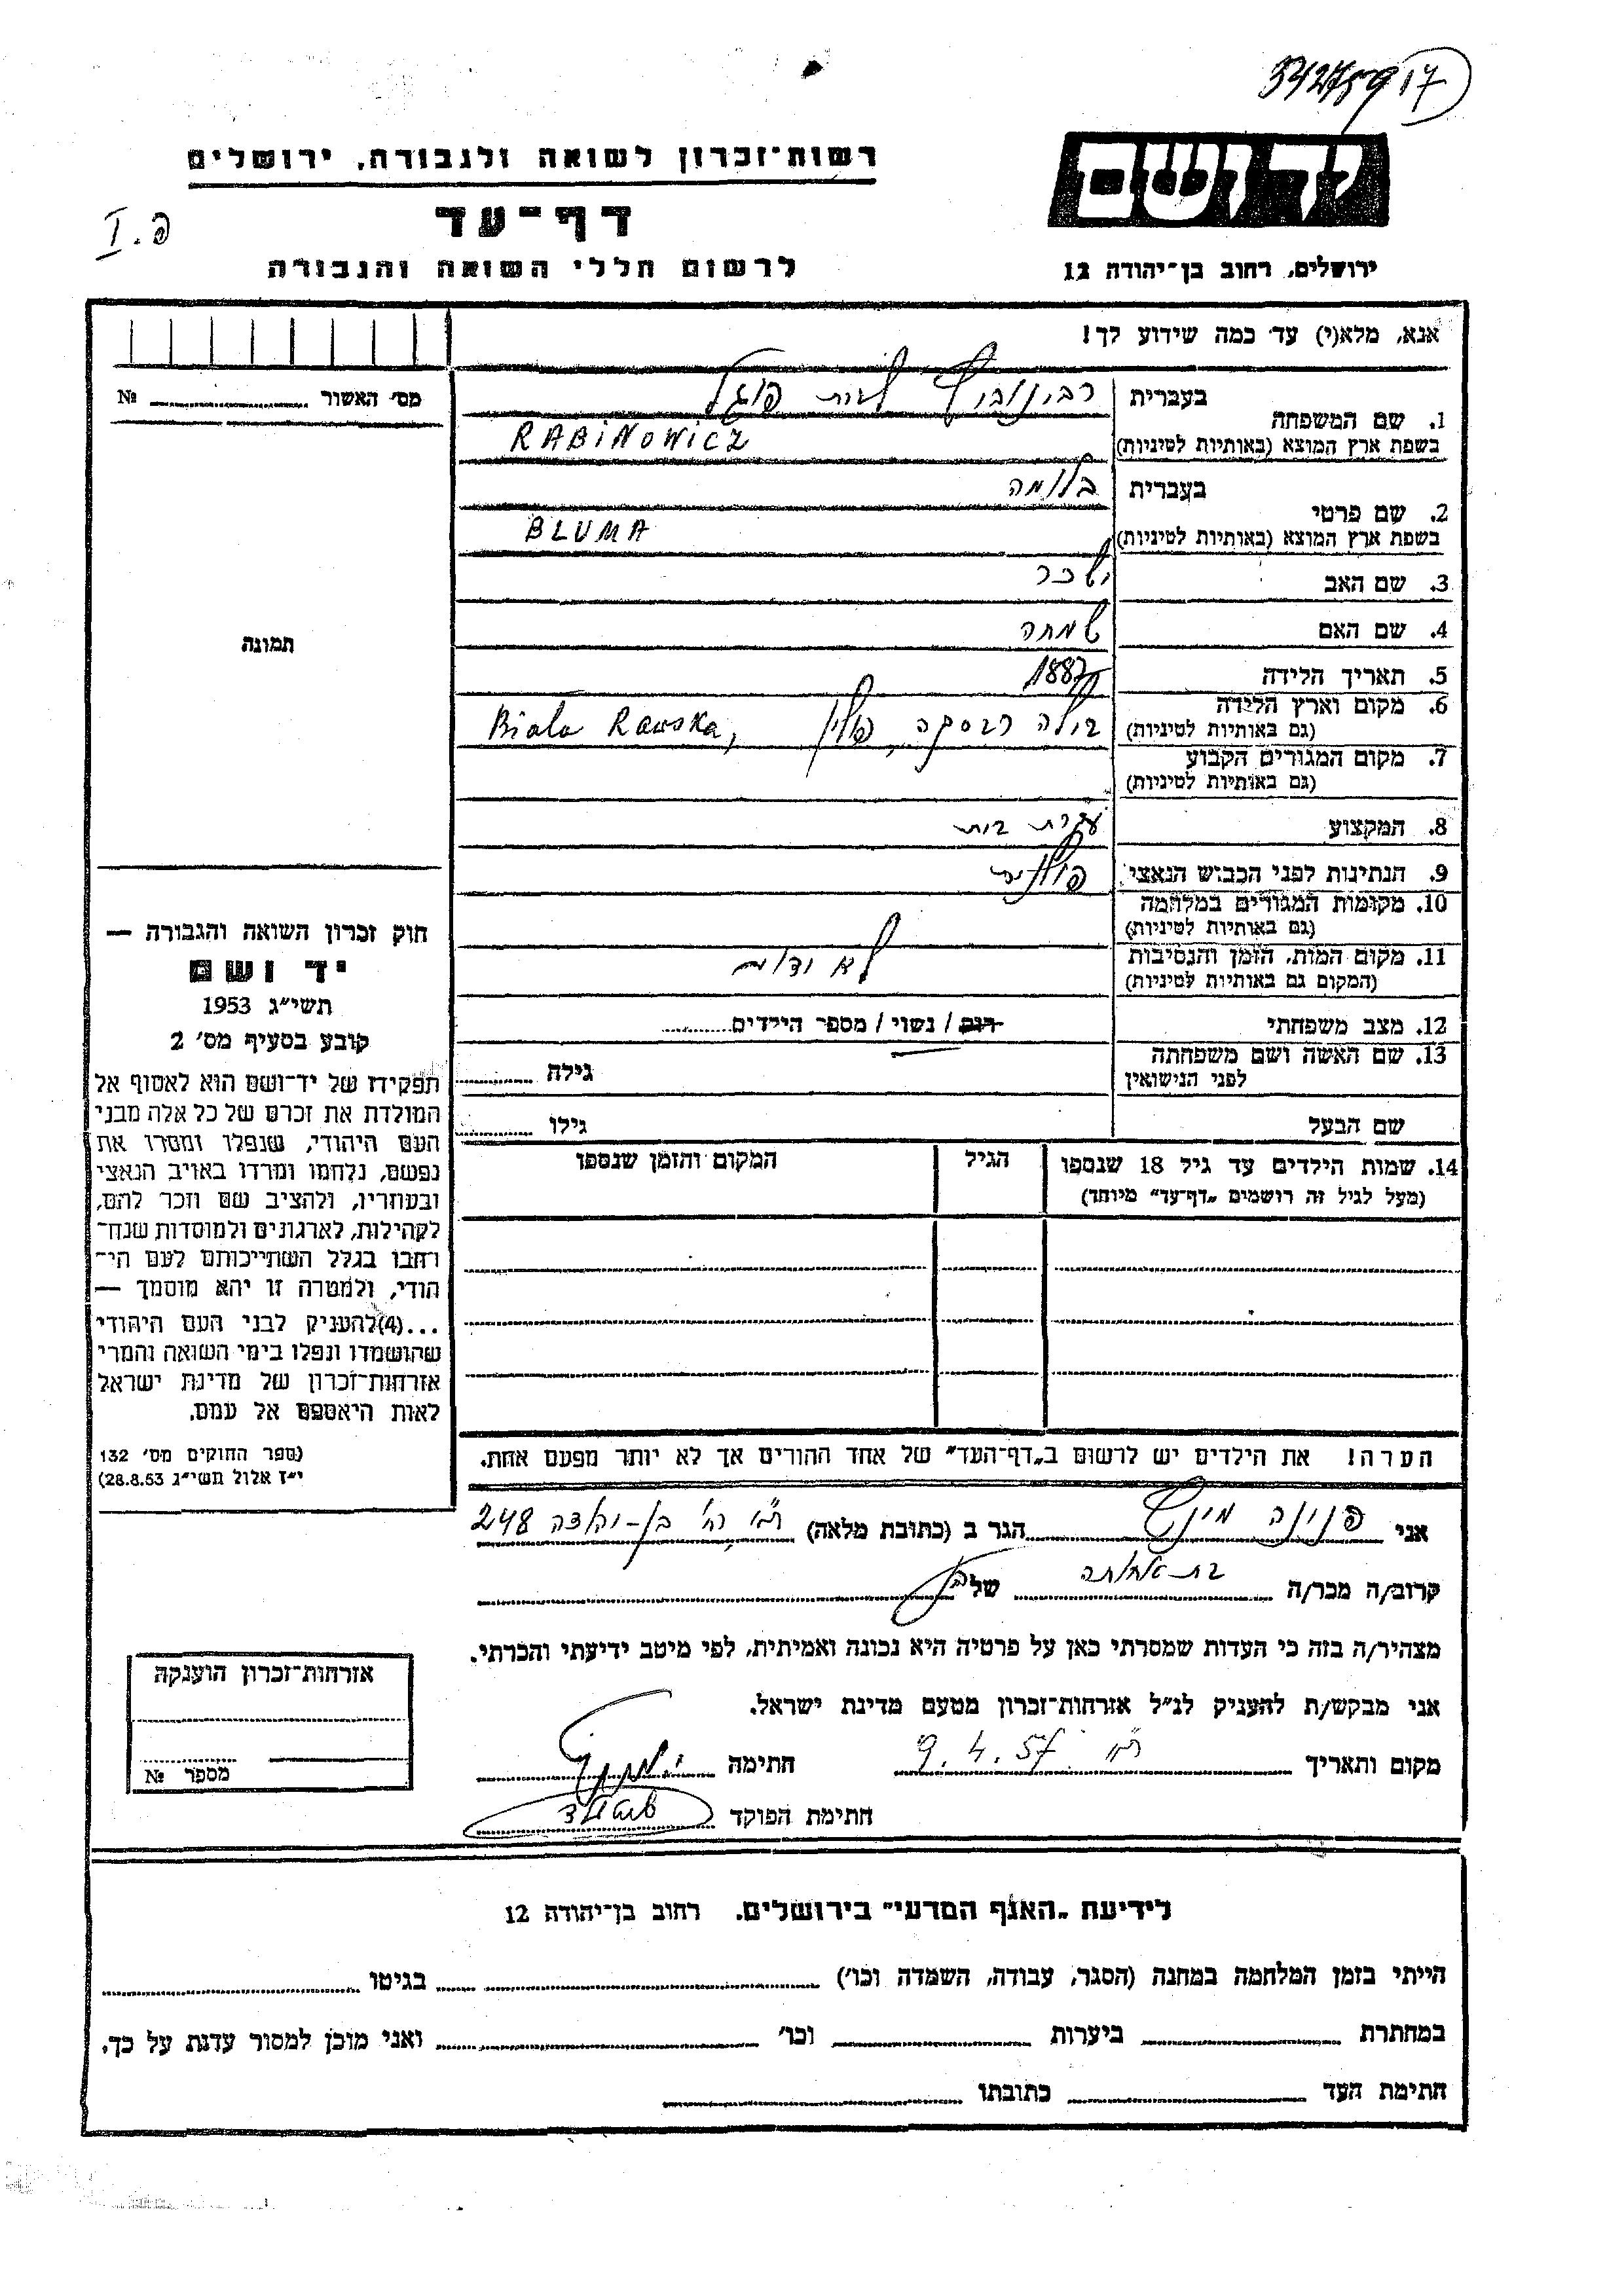 17
רשות־זכרון לשואה ולגבורה, ירושלים
יד ושם
דף־עד
פ. I
לרשום חללי השואה והגבורה
ירושלים, רחוב בן־יהודה 12
אנא, מלא(י) עד כמה שידוע לך!
מס׳ האשור № 
1. שם המשפחה בעברית רבינוביץ לבית פוגל
בשפת ארץ המוצא (באותיות לטיניות) RABINOWICZ
2. שם פרטי בעברית בלומה
בשפת ארץ המוצא (באותיות לטיניות) BLUMA
3. שם האב יששכר
4. שם האם שמחה
תמונה
5. תאריך הלידה 1887
6. מקום וארץ הלידה ביאלה רבסקה, פולין
(גם באותיות לטיניות) Biala Rawska,
7. מקום המגורים הקבוע
(גם באותיות לטיניות)
8. המקצוע עקרת בית
9. הנתינות לפני הכבוש הנאצי פולנית
10. מקומות המגורים במלחמה
(גם באותיות לטיניות)
11. מקום המות, הזמן והנסיבות לא ידוע
(המקום גם באותיות לטיניות)
12. מצב משפחתי רווק / נשוי / מספר הילדים
13. שם האשה ושם משפחתה
לפני הנישואין גילה
שם הבעל גילו
14. שמות הילדים עד גיל 18 שנספו הגיל המקום והזמן שנספו
(מעל לגיל זה רושמים „דף־עד" מיוחד)
חוק זכרון השואה והגבורה —
יד ושם
תשי״ג 1953
קובע בסעיף מס׳ 2
תפקידו של יד־ושם הוא לאסוף אל
המולדת את זכרם של כל אלה מבני
העם היהודי, שנפלו ומסרו את
נפשם, נלחמו ומרדו באויב הנאצי
ובעוזריו, ולהציב שם וזכר להם,
לקהילות, לארגונים ולמוסדות שנח־
רחבו בגלל השתייכותם לעם הי־
הודי, ולמטרה זו יהא מוסמך —
...(4) להעניק לבני העם היהודי
שהושמדו ונפלו בימי השואה והמרי
אזרחות־זכרון של מדינת ישראל
לאות היאספם אל עמם.
(ספר החוקים מס׳ 132
י״ז אלול תשי״ג 28.8.53)
הערה! את הילדים יש לרשום ב„דף־העד" של אחד ההורים אך לא יותר מפעם אחת.
אני פנינה הגר ב (כתובת מלאה) ת״א רח׳ בן-יהודה 248
קרוב/ה מכר/ה בת אחותה של
מצהיר/ה בזה כי העדות שמסרתי כאן על פרטיה היא נכונה ואמיתית, לפי מיטב ידיעתי והכרתי.
אני מבקש/ת להעניק לנ״ל אזרחות־זכרון מטעם מדינת ישראל.
מקום ותאריך ת״א 9.4.57 חתימה
חתימת הפוקד
אזרחות־זכרון הוענקה
מספר №
לידיעת „האגף המדעי" בירושלים, רחוב בן־יהודה 12
הייתי בזמן המלחמה במחנה (הסגר, עבודה, השמדה וכו׳) בגיטו
במחתרת ביערות וכו׳ ואני מוכן למסור עדות על כך.
חתימת העד כתובתו